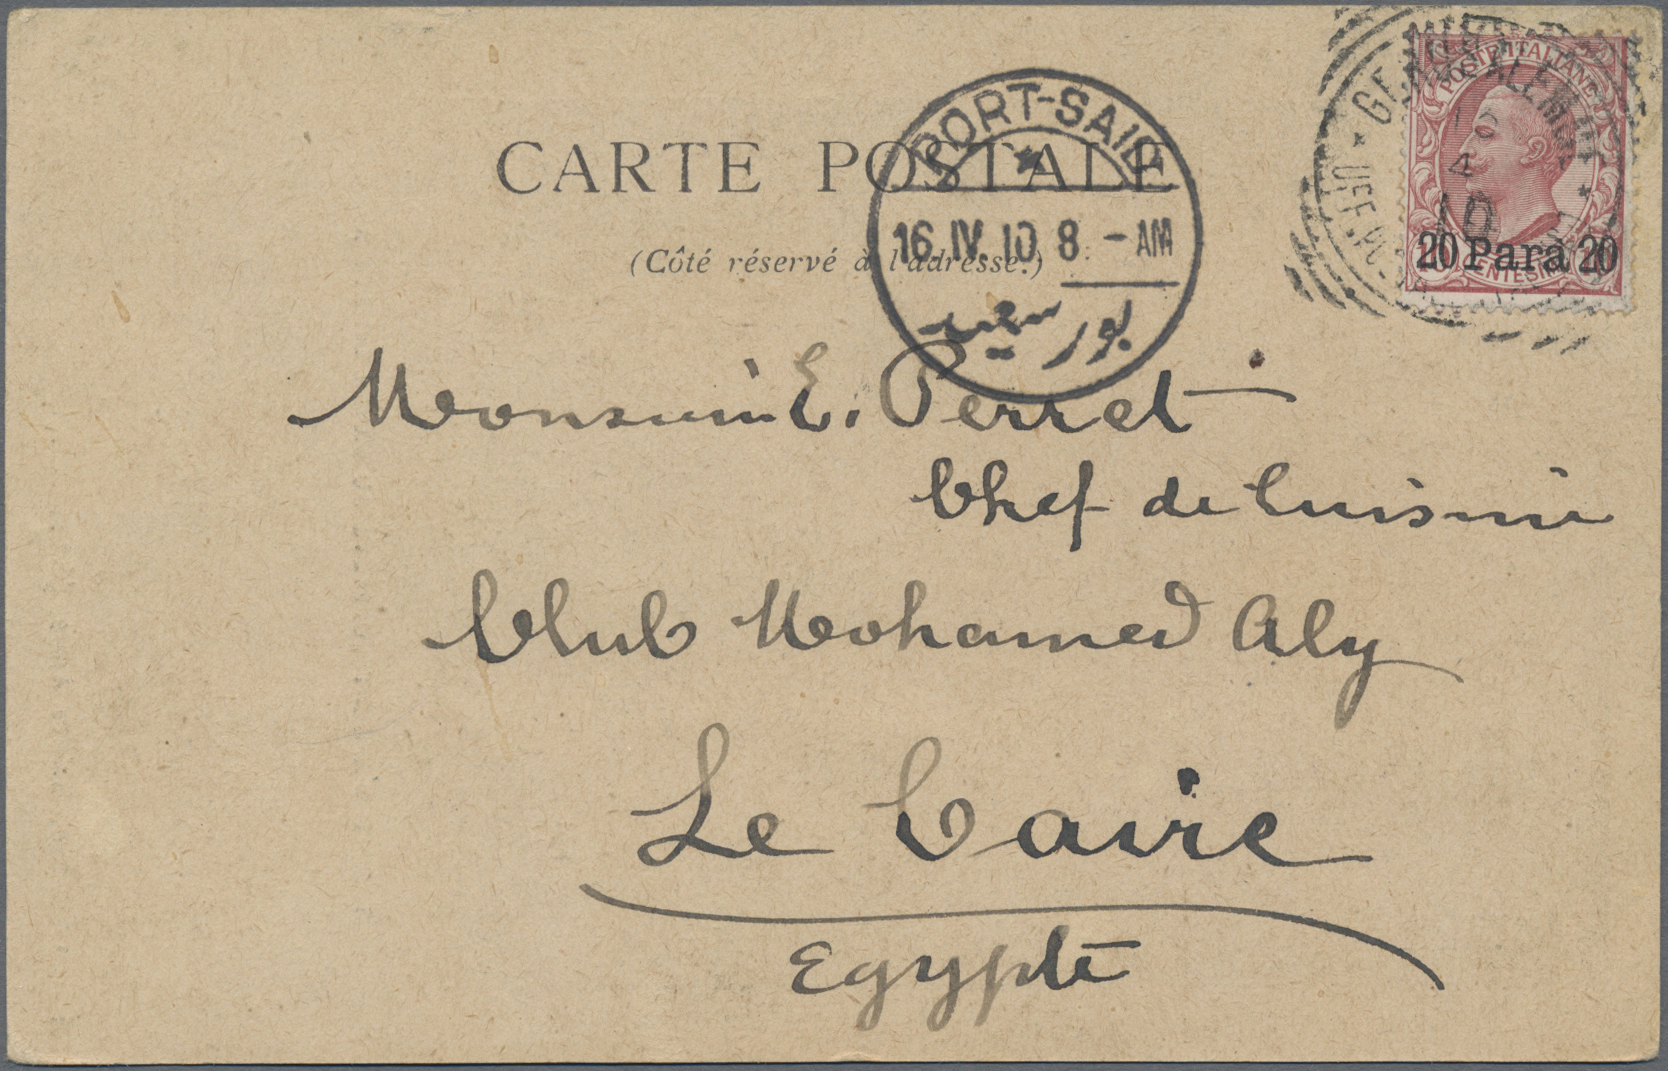 CARTE POSTALE
(Côté réservé à l'adresse.)
PORT-SAID
16.IV.10 8 - AM
بور سعيد
GERUSALEMME
4
10
POSTE ITALIANE
20 Para 20
CENTESIMI
Monsieur E. Perret
Chef de Cuisine
Club Mohamed Aly
Le Caire
Egypte